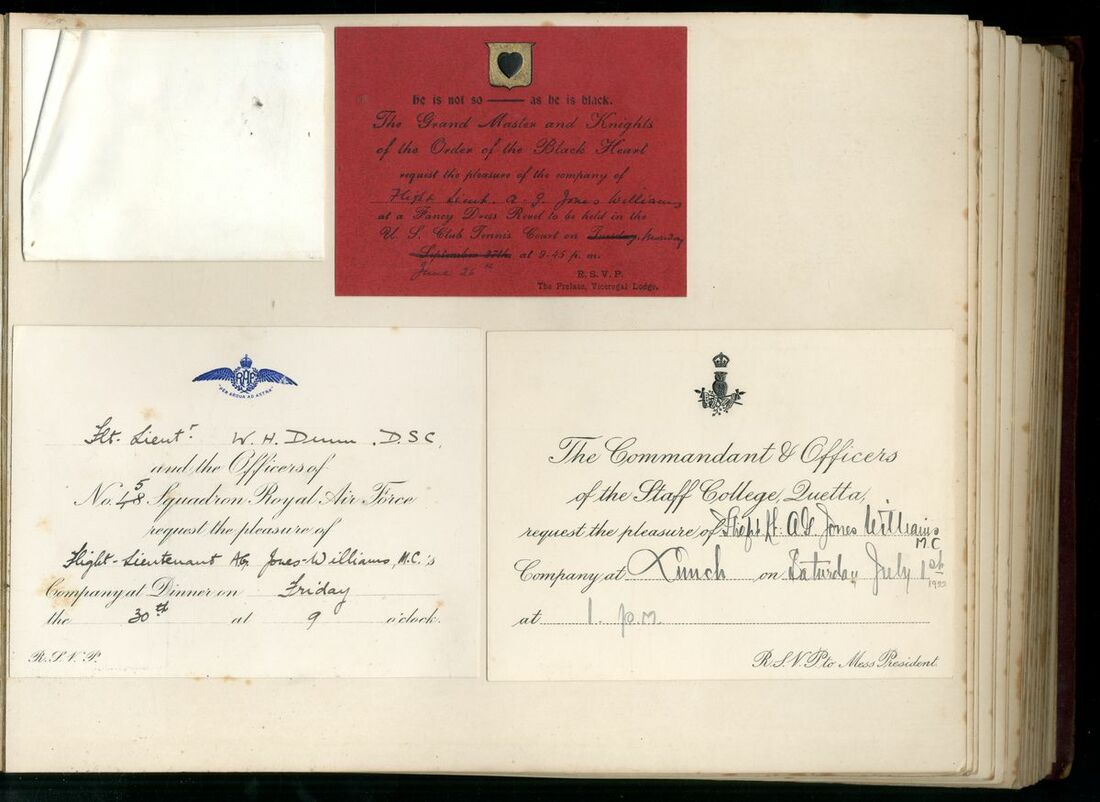 he is not so —— as he is black.
The Grand Master and Knights
of the Order of the Black Heart
request the pleasure of the company of
Flight Lieut. A. G. Jones Williams
at a Fancy Dress Revel to be held in the
U. S. Club Tennis Court on Tuesday, Monday
September 27th. at 9-45 p. m.
June 26th
R. S. V. P.
The Prelate, Viceregal Lodge.
RAF
PER ARDUA AD ASTRA
Flt. Lieutr. W. H. Dunn, D.S.C,
and the Officers of
5
No. 48 Squadron Royal Air Force
request the pleasure of
Flight-Lieutenant AG. Jones-Williams, M.C.'s
Company at Dinner on Friday
the 30th at 9 o'clock.
R.S.V.P.
The Commandant & Officers
of the Staff College, Quetta,
request the pleasure of A.G. Jones Williams
M.C
Company at Lunch on Saturday July 1st
1922
at 1. p.m.
R.S.V.P. to Mess President.